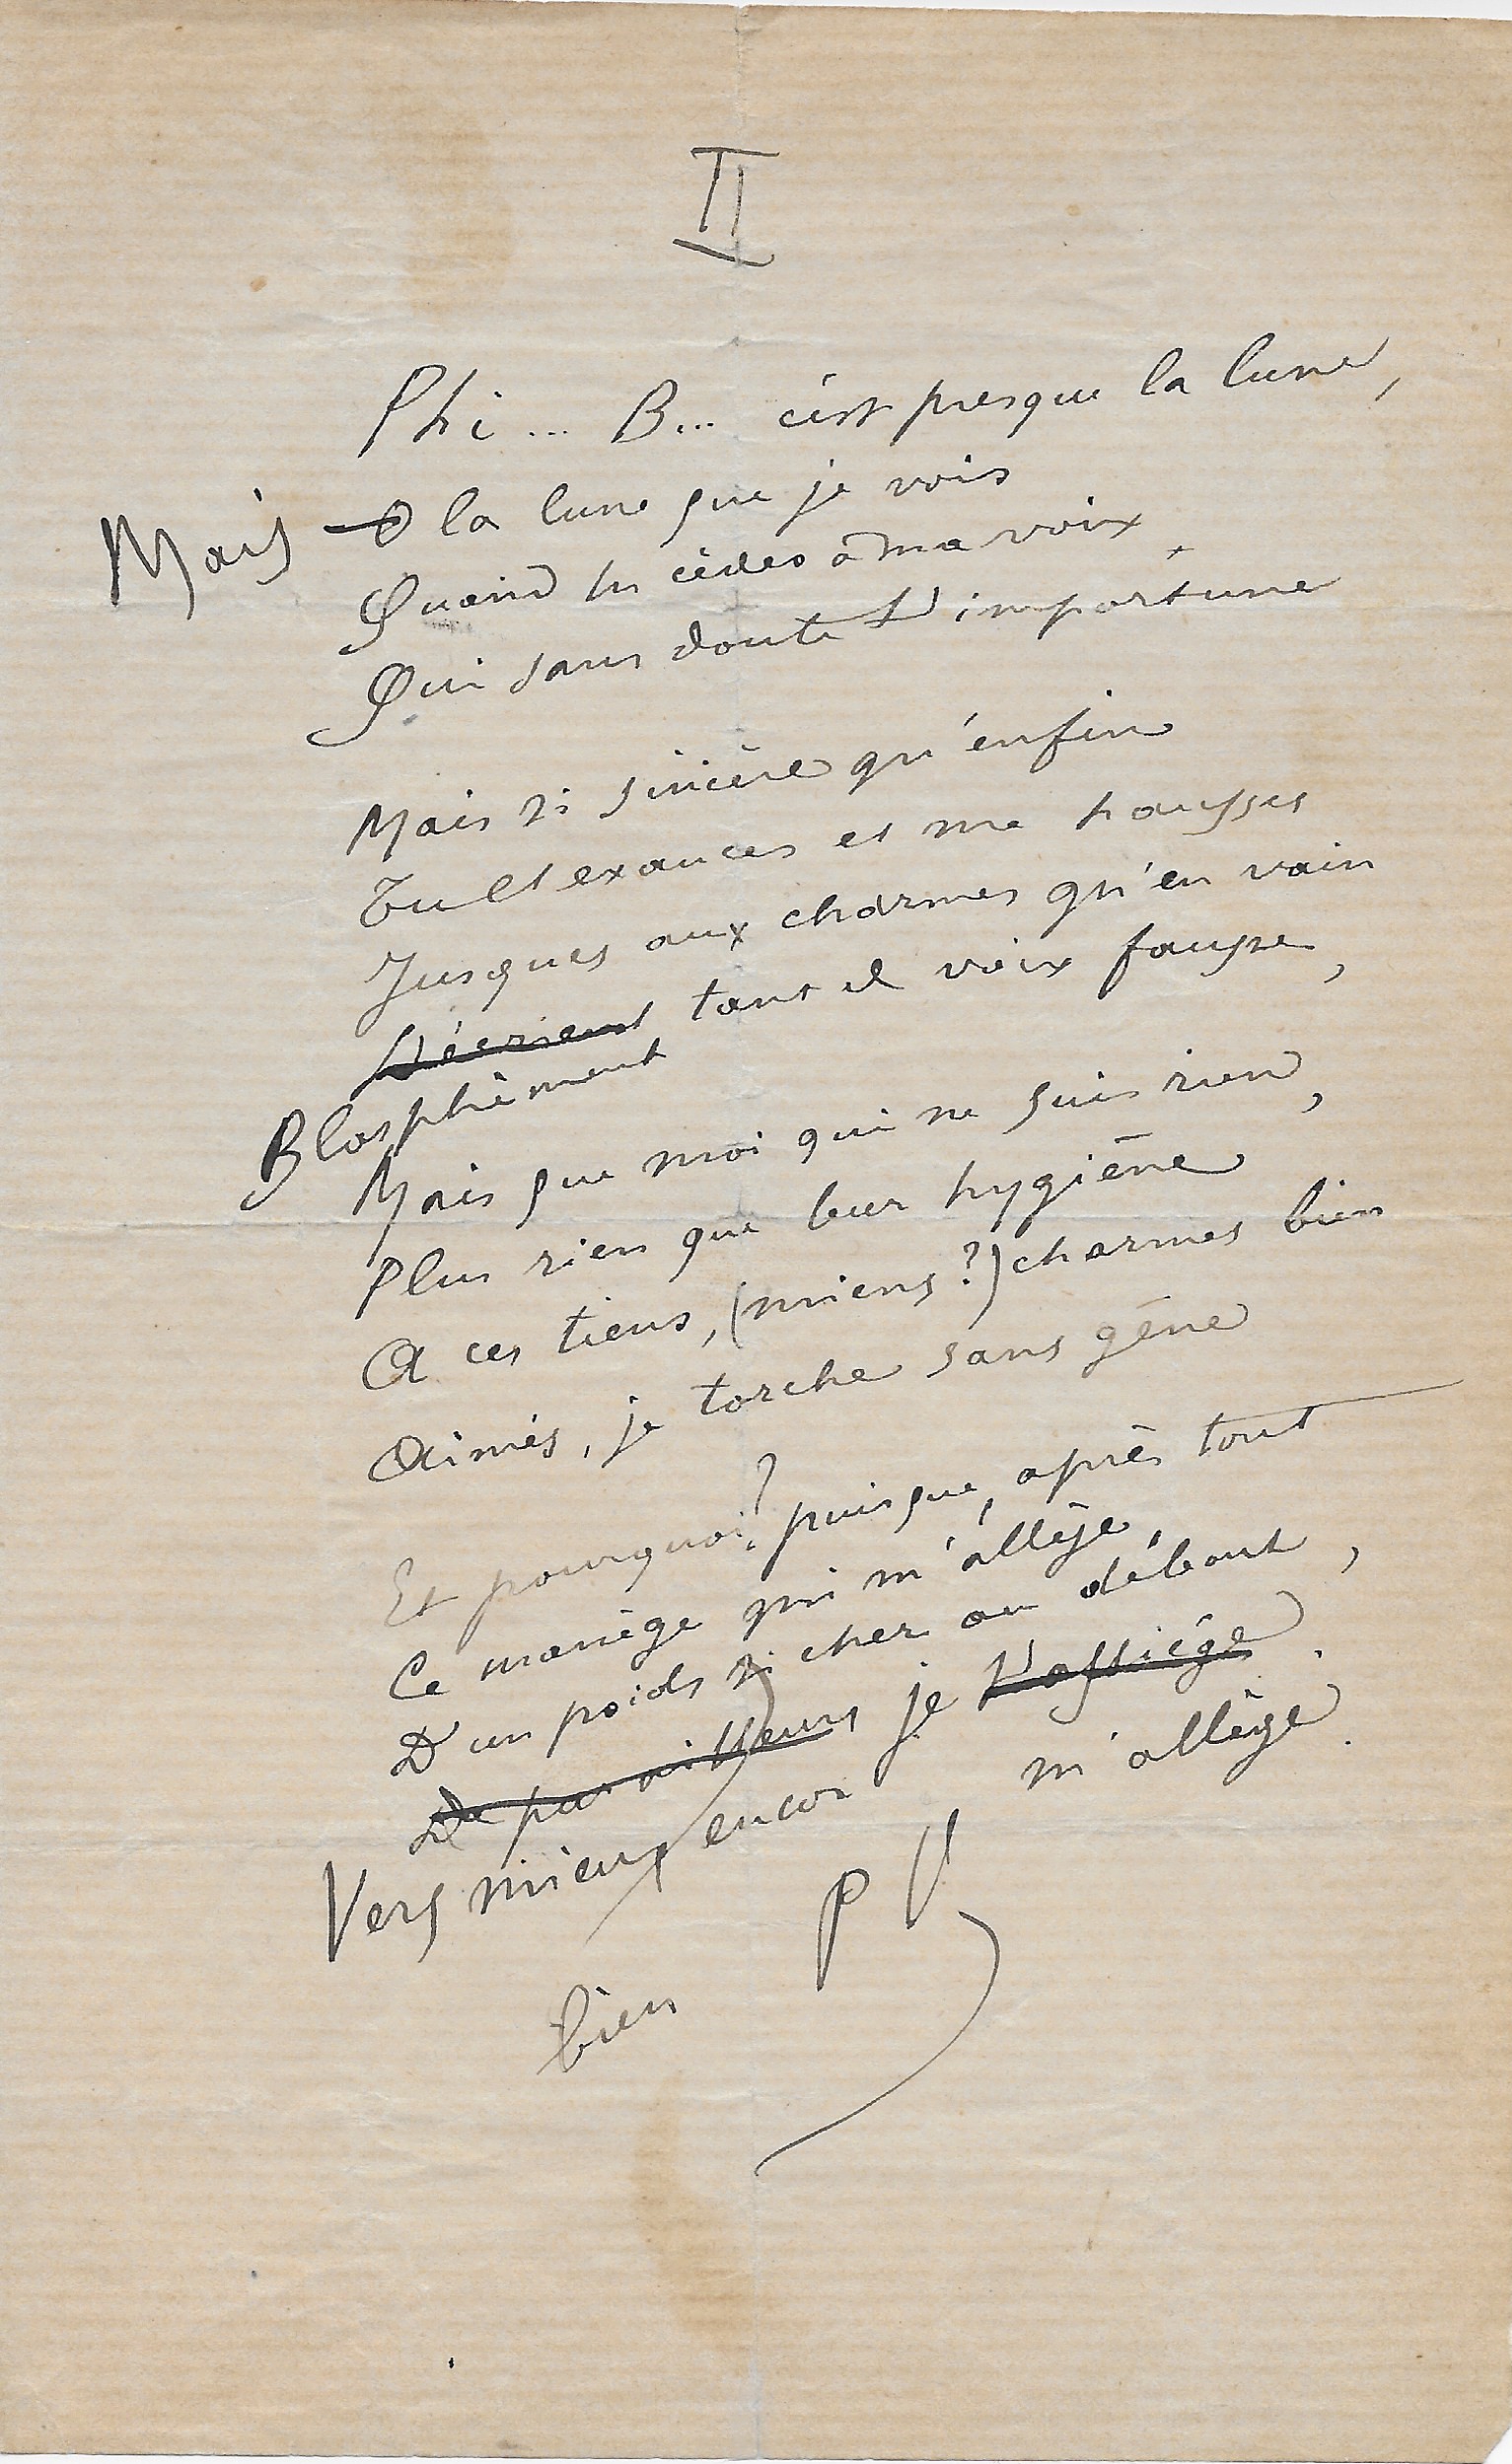 II
Phi... B... c'est presque la lune,
Mais O la lune que je vois
Quand tu cèdes à ma voix
Qui sans doute t'importune
Mais si sincère qu'enfin
Tu l'exauces et me hausses
Jusques aux charmes qu'en vain
Décrient tant de voix fausses,
Blasphèment
Mais que moi qui ne suis rien,
Plus rien que leur hygiène
A ces tiens, (miens?) charmes bien
Aimés, je torche sans gêne
Et pourquoi? puisque, après tout
Ce manège qui m'allège,
D'un poids si cher au débout,
De par ailleurs je t'assiège.
Vers mieux encor m'allège.
bien
P V